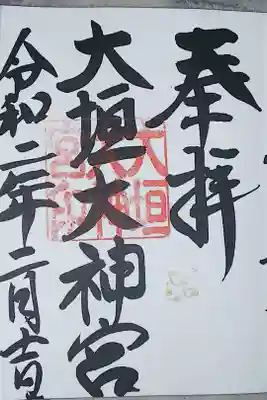 奉拝
大垣大神宮
令和二年二月吉日